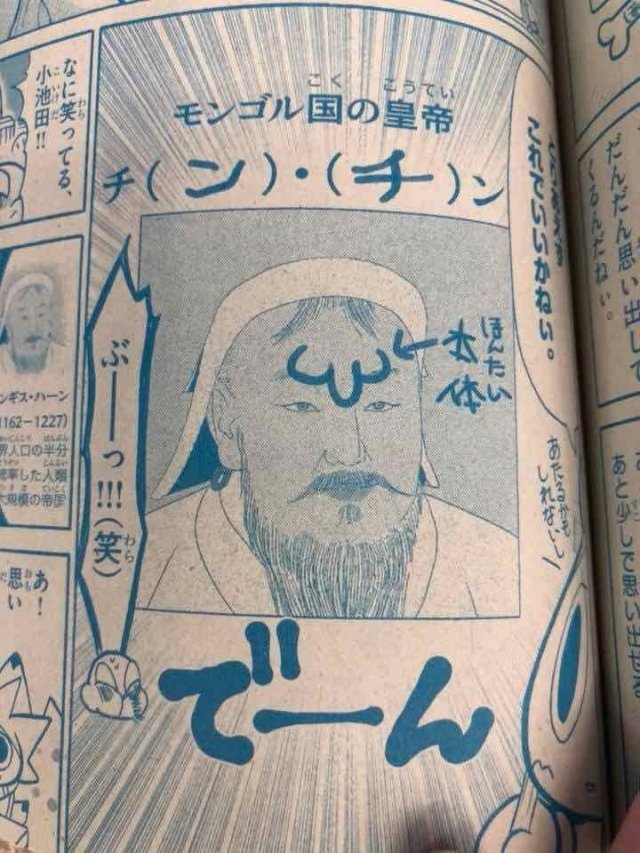 モンゴル国の皇帝
こく
こうてい
チ(ン)・(チ)ン
これでいいかねぃ。
ほんたい
本体
あたるかも
しれないし
ぶーーっ!!!(笑)
わら
でーん
なに笑ってる、
わら
小池田!!
こいけだ
ンギス・ハーン
162－1227)
界人口の半分
した人類
大規模の帝国
あ!
思い
だんだん思い出して
くるんだねぃ。
あと少しで思い出せ